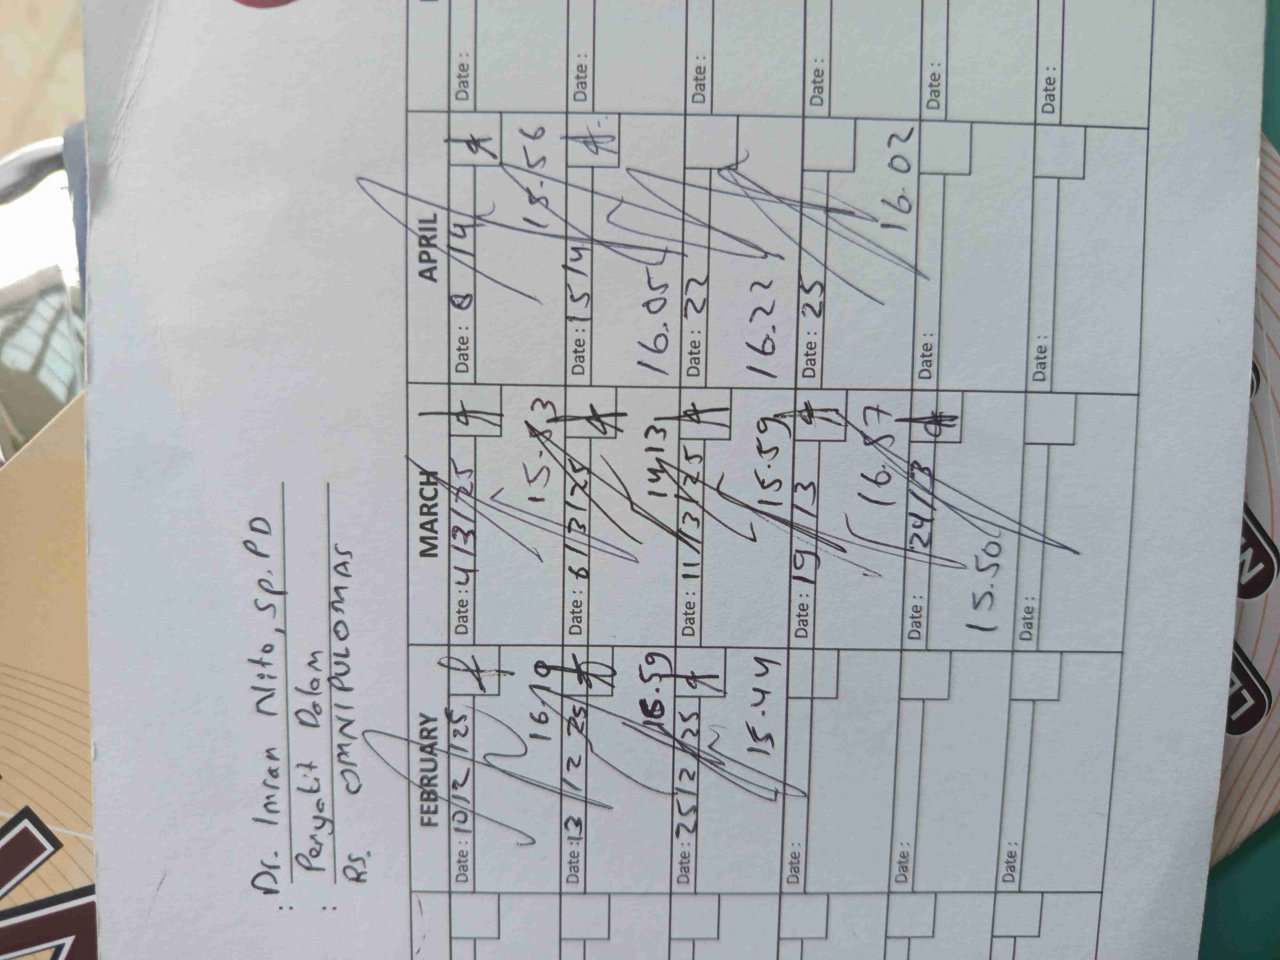 : Dr. Imran Nito, Sp.PD
Penyakit Dalam
: RS. OMNI PULOMAS
FEBRUARY
MARCH
APRIL
Date : 10/2/25
Date : 4/3/25
Date : 8/4
Date :
16.19
15.56
Date : 13/2 25
Date : 6/3/25
Date : 15/4
Date :
14.13
16.05
Date : 25/2/25
Date : 11/3/25
Date : 22
Date :
15.44
15.59
16.22
Date :
Date : 19/3
Date : 25
Date :
16.02
Date :
Date : 24/3
Date :
Date :
15.50
Date :
Date :
Date :
Date :